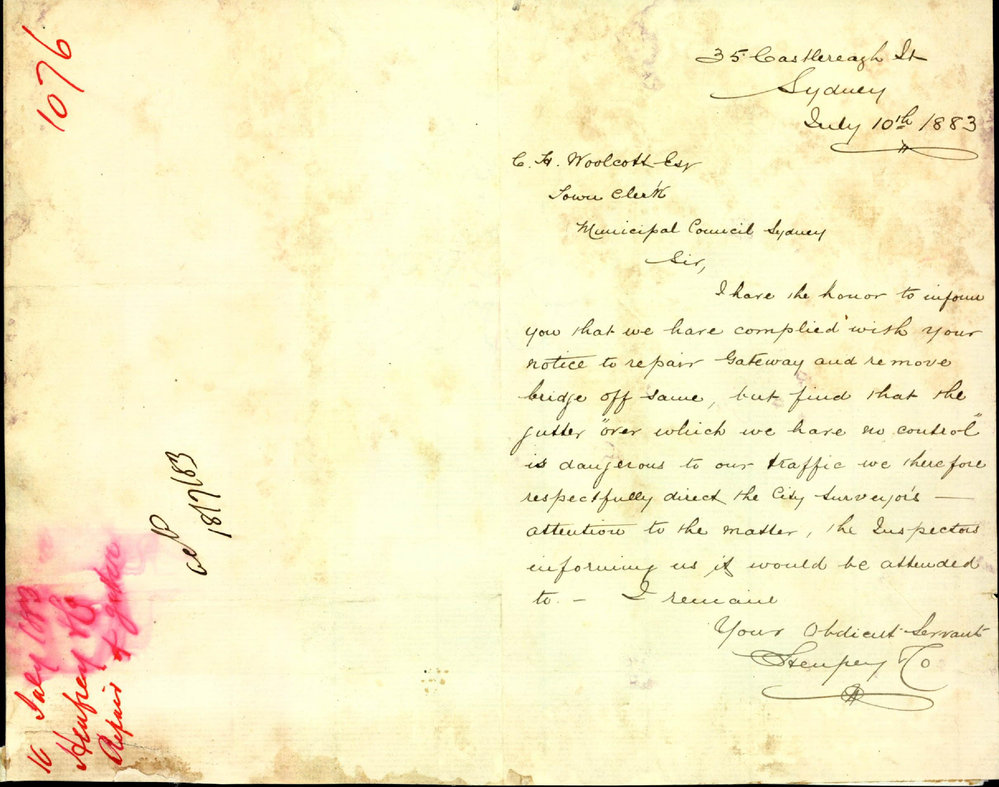 1076
10 July 1883
Repair of gutter
18/7/83
35 Castlereagh St
Sydney
July 10th 1883
C. H. Woolcott Esq
Town Clerk
Municipal Council Sydney
Sir,
I have the honor to inform
you that we have complied with your
notice to repair Gateway and remove
bridge off same, but find that the
gutter "over which we have no control"
is dangerous to our traffic we therefore
respectfully direct the City Surveyor's —
attention to the matter, the Inspectors
informing us it would be attended
to. — I remain
Your Obdient Servant